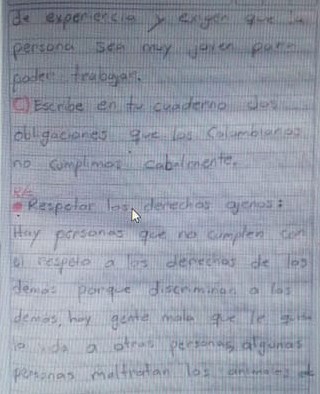 de experiencia y exigen que la
persona sea muy joven para
poder trabajar.
C) Escribe en tu cuaderno dos
obligaciones que los Colombianos
no cumplimos cabalmente.
R/
Respetar los derechos ajenos:
Hay personas que no cumplen con
el respeto a los derechos de los
demas porque discriminan a los
demás, hay gente mala que le quita
la vida a otras personas, algunas
personas maltratan los animales